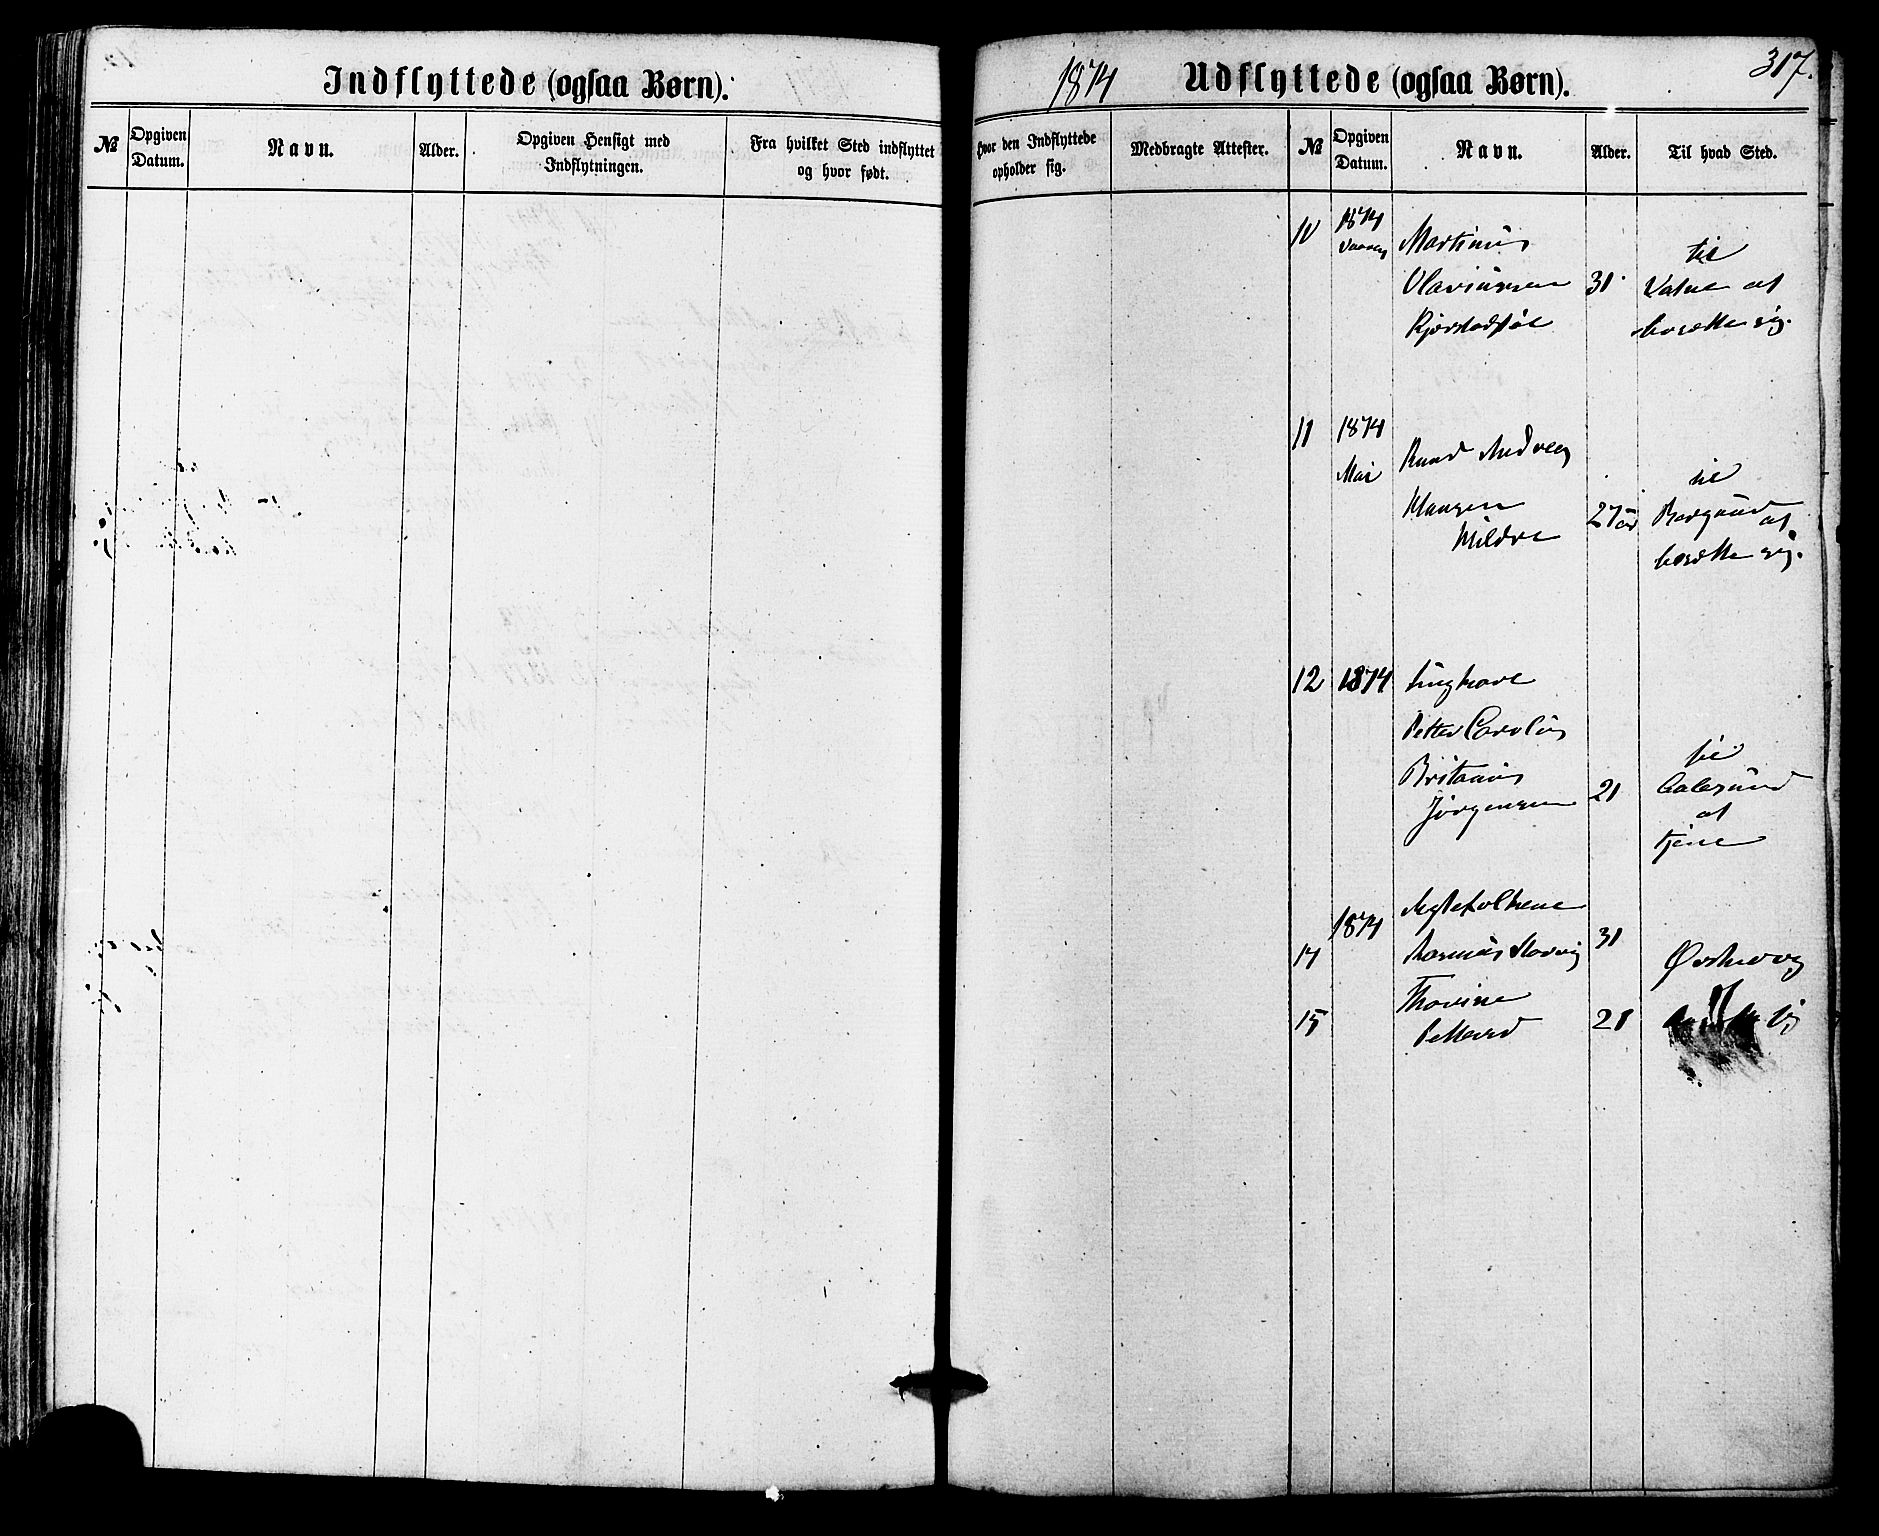 Indflyttede (ogsaa Børn).
№
Opgiven
Datum.
Navn.
Alder.
Opgiven Hensigt med
Indflytningen.
Fra hvilket Sted indflyttet
og hvor født.
1874
Udflyttede (ogsaa Børn).
317.
Hvor den Indflyttede
opholder sig.
Medbragte Attester.
№
Opgiven
Datum.
Navn.
Alder.
Til hvad Sted.
10
1874
Martinus
Olariussen
31
til
Vatne at
bosætte sig.
11
1874
Mai
Knud Andreas
Hansen
Mildre
27 år
til
Borgund
at
bosætte sig.
12
1874
Ungkarl
Petter Carolus
Britanus
Jørgensen
21
til
Aalesund
at
tjene
1874
Ægtefolkene
14
Rasmus
31
Ørskoug
15
Thorine
Pettersd
21